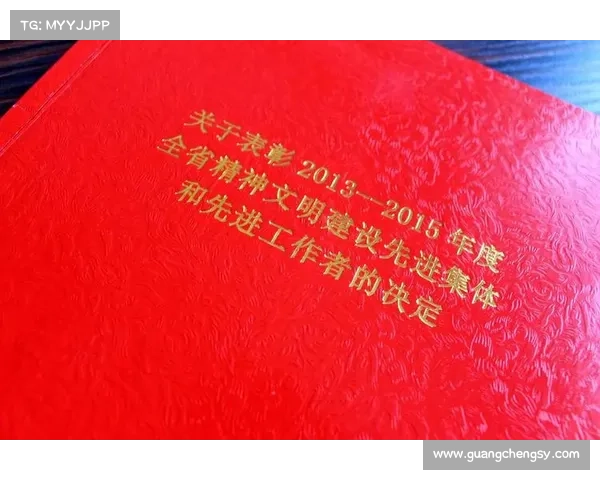 TG: MYYJJPP
关于表彰 2013—2015 年度
全省精神文明建设先进集体
和先进工作者的决定
www.guangchengsy.com